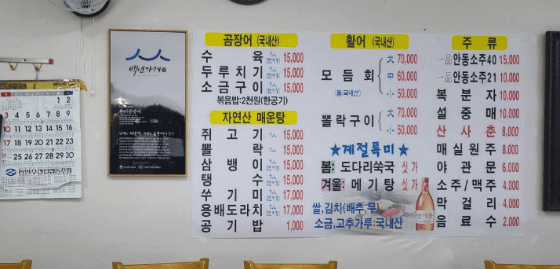 백년가게
곰장어 (국내산)
수육 15,000
두루치기 15,000
소금구이 15,000
볶음밥-2천원(한공기)
자연산 매운탕
쥐고기 15,000
뽈락 15,000
삼뱅이 15,000
탱수 15,000
쑤기미 17,000
용배도라치 17,000
공기밥 1,000
활어 (국내산)
모듬회 大 70,000
中 60,000
小 50,000
뽈락구이 大 70,000
小 50,000
★계절특미★
봄: 도다리쑥국 싯가
겨울: 메기탕 싯가
쌀,김치(배추,무)
소금,고추가루:국내산
주류
안동소주40 15,000
안동소주21 10,000
복분자 10,000
설중매 10,000
산사춘 8,000
매실원주 8,000
야관문 6,000
소주/맥주 4,000
막걸리 4,000
음료수 2,000
1 2
3 4 5 6 7 8 9
10 11 12 13 14 15 16
17 18 19 20 21 22 23
24 25 26 27 28 29 30